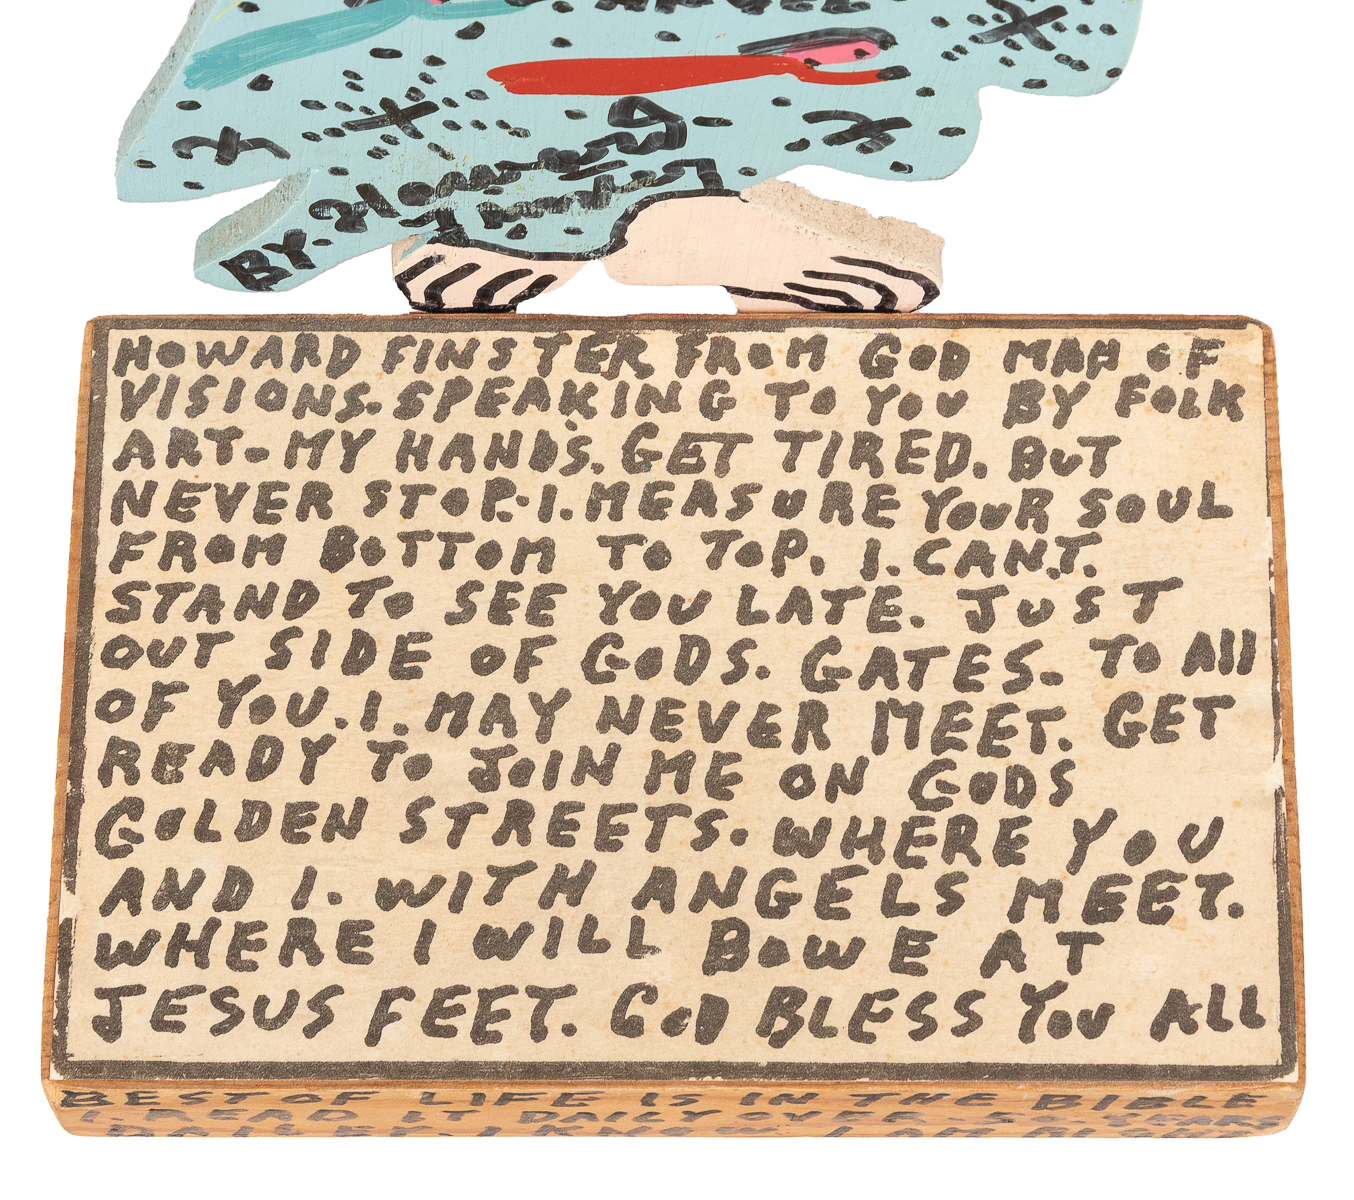 BY. HOWARD
FINSTER
HOWARD FINSTER FROM GOD MAN OF
VISIONS. SPEAKING TO YOU BY FOLK
ART- MY HAND'S. GET TIRED. BUT
NEVER STOP.-I. MEASURE YOUR SOUL
FROM BOTTOM TO TOP. I. CAN.T.
STAND TO SEE YOU LATE. JUST
OUT SIDE OF GODS. GATES. TO All
OF YOU. I. MAY NEVER MEET. GET
READY TO JOIN ME ON GODS
GOLDEN STREETS. WHERE YOU
AND I. WITH ANGELS MEET.
WHERE I WILL BOWE AT
JESUS FEET. GOD BLESS YOU ALL
BEST OF LIFE IS IN THE BIBLE
I. READ IT DAILY OVER
I KNOW I AM